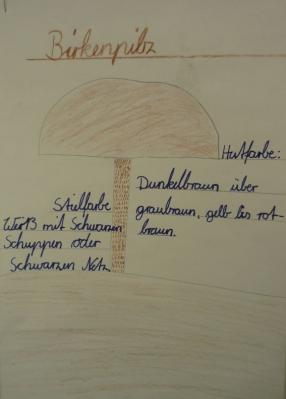 Birkenpilz
Hutfarbe:
Dunkelbraun über
graubraun, gelb bis rot-
braun.
Stielfarbe
Weiß mit Schwarzen
Schuppen oder
Schwarzen Netz